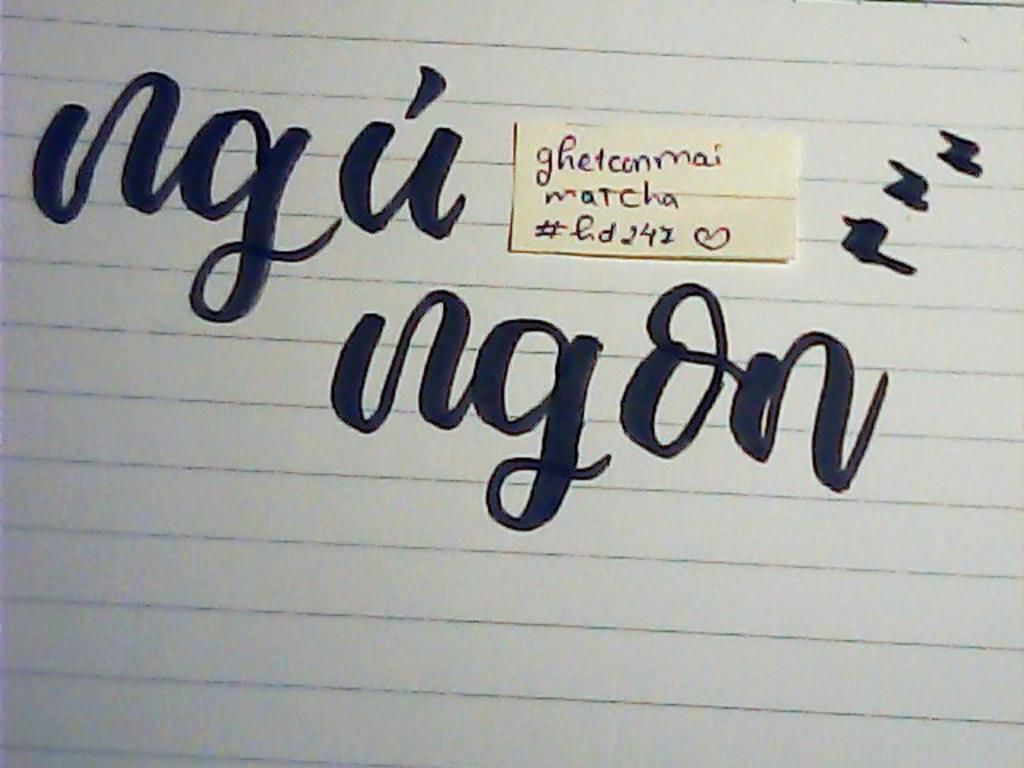 ngú
ghetconmai
matcha
#hd247 ♡
z z z
ngon